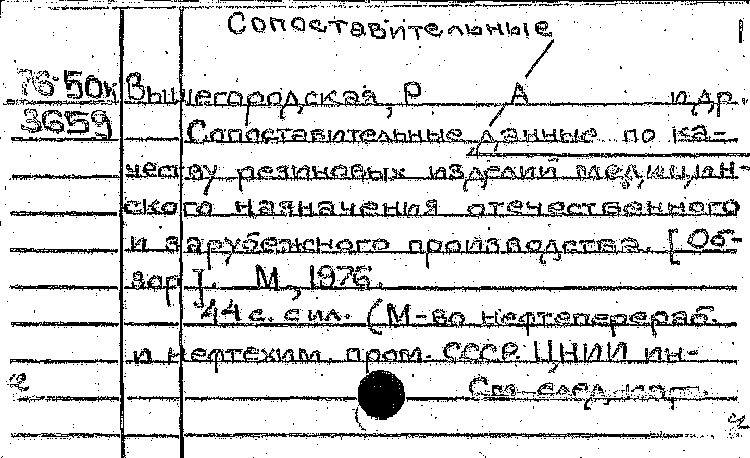 Сопоставительные 1
76-50к Вышегородская, Р А и др.
3659 Сопоставительные данные по ка-
честву резиновых изделий медицин-
ского назначения отечественного
и зарубежного производства. [Об-
зор]. М., 1976.
44 с. с ил. (М-во нефтеперераб.
и нефтехим. пром. СССР. ЦНИИ ин-
2 См. след. карт.